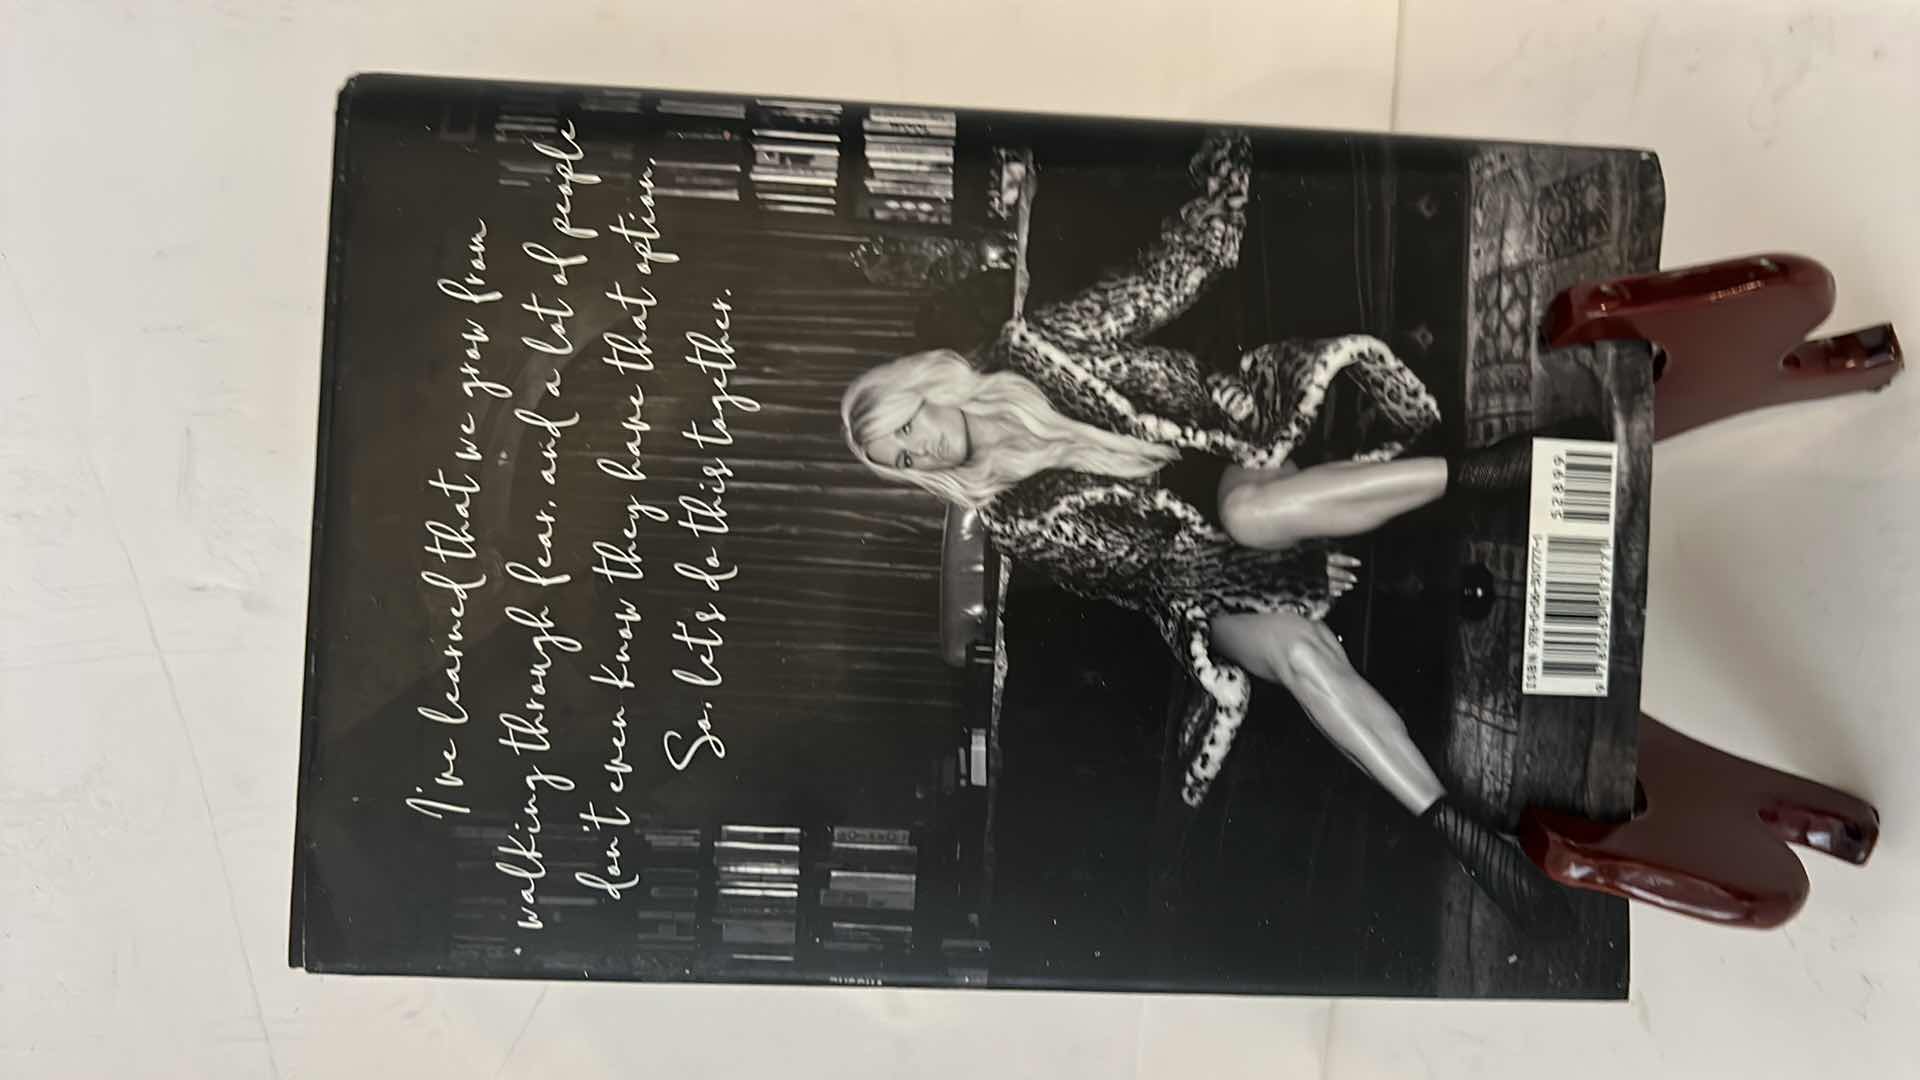 I've learned that we grow from
walking through fear, and a lot of people
don't even know they have that option.
So, let's do this together.
52899
ISBN 978-0-06-301777-1